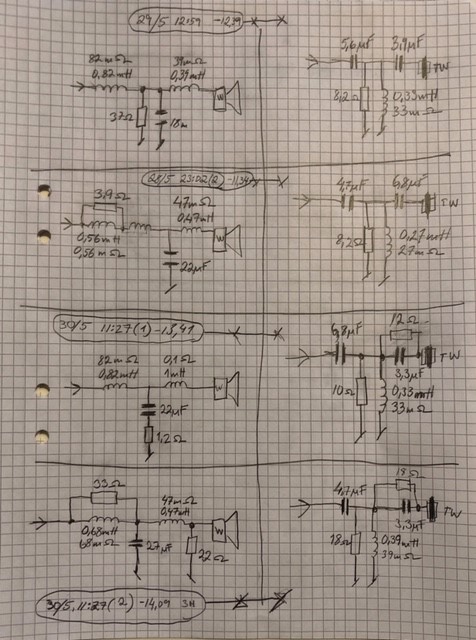 29/5 12:59 -1239
82mΩ 39mΩ
0,82mH 0,39mH
W
18m
5,6µF 3,9µF
TW
8,2Ω 0,33mH
33mΩ
28/5 23:02(2) -11,34
3,9Ω 47mΩ
0,47mH
W
0,56mH
0,56mΩ
22µF
4,7µF 6,8µF
TW
8,2Ω 0,27mH
27mΩ
30/5 11:27(1) -13,41
82mΩ 0,1Ω
0,82mH 1mH
W
22µF
1,2Ω
12Ω
6,8µF
TW
3,3µF
10Ω 0,33mH
33mΩ
33Ω
47mΩ
0,47mH
W
0,68mH
68mΩ
27µF
22Ω
18Ω
4,7µF
TW
3,3µF
18Ω 0,39mH
39mΩ
30/5, 11:27(2) -14,09 3H